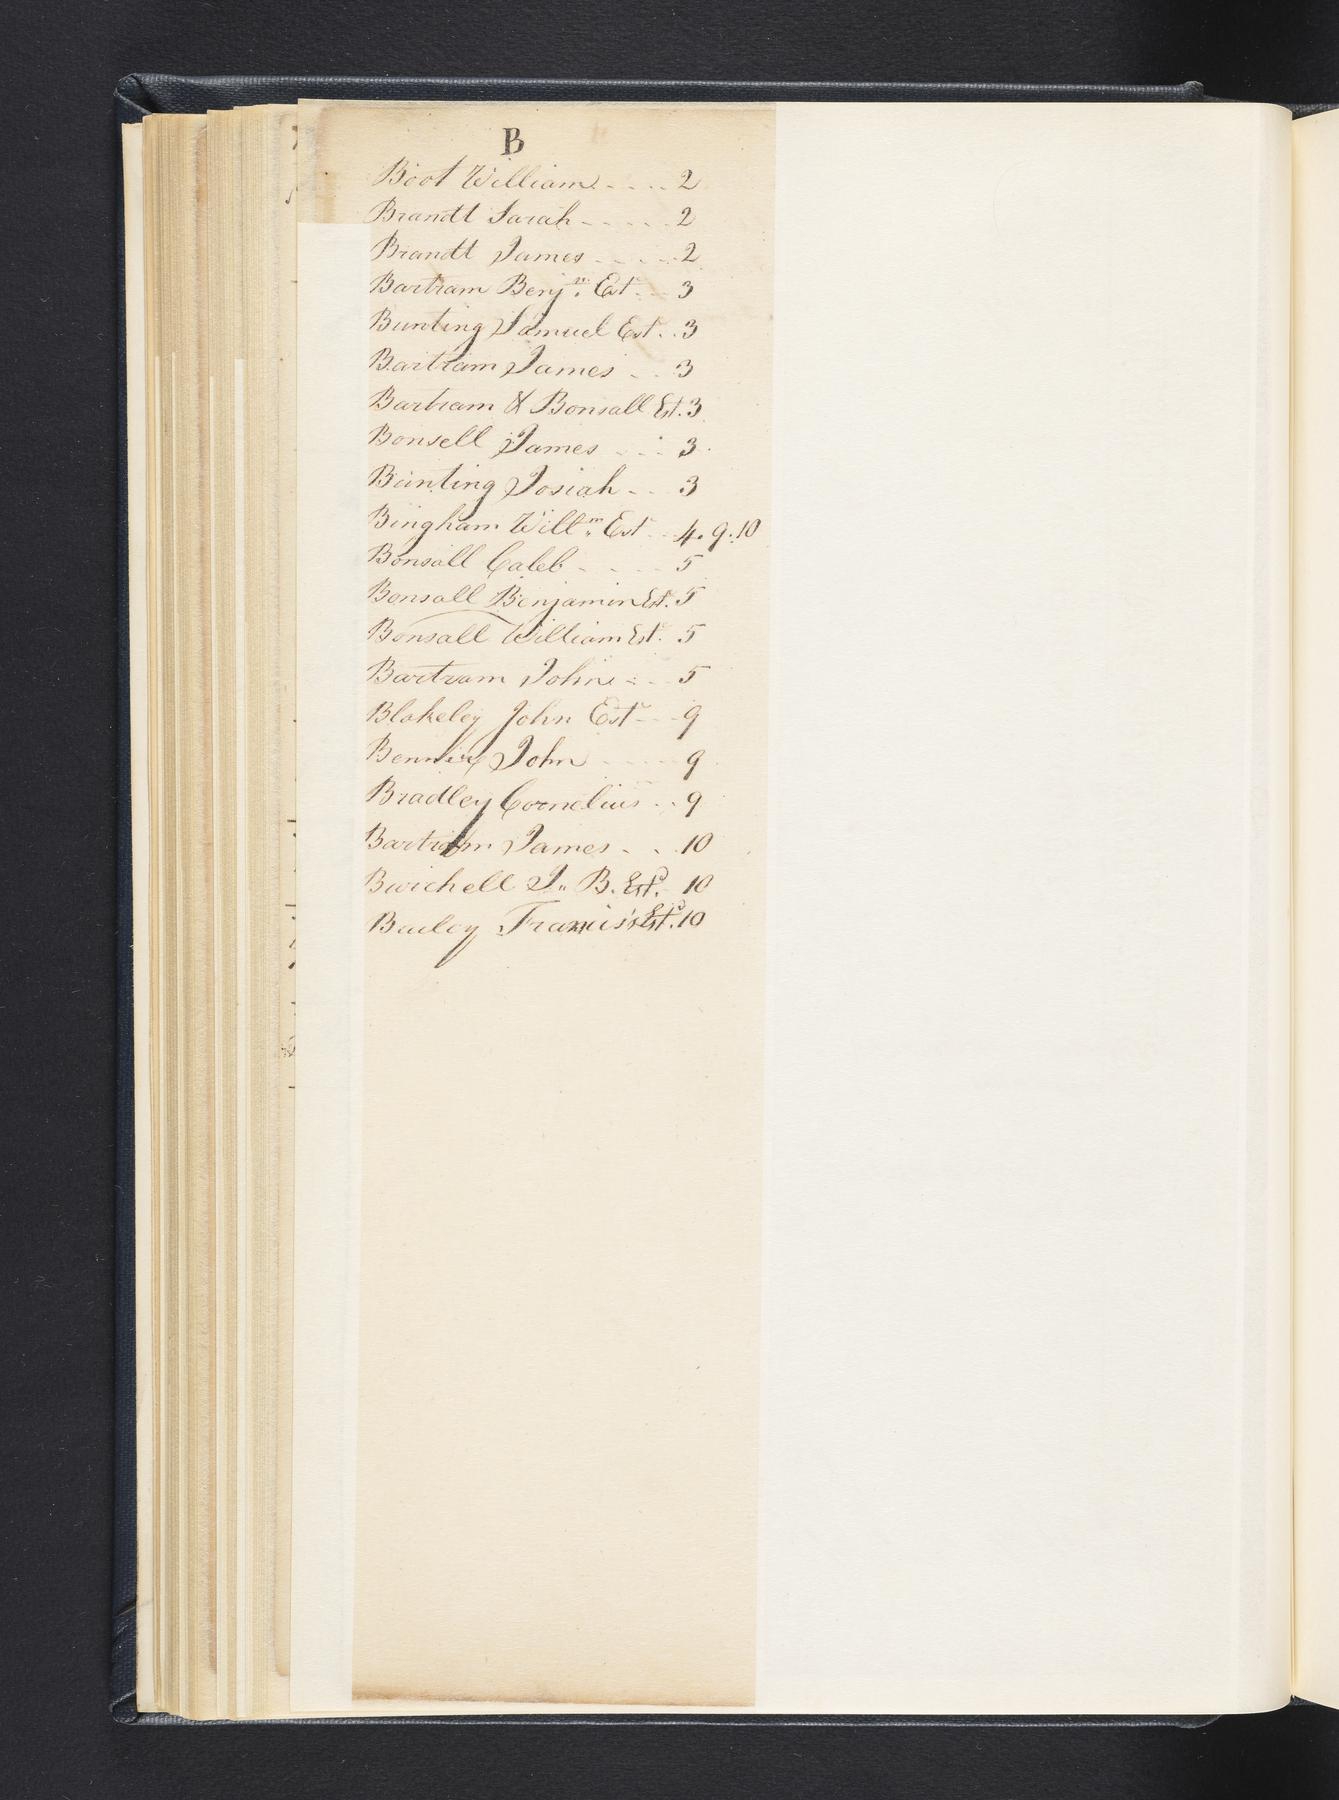 B
Boot William . . . . 2
Brandt Sarah - - - - - 2
Brandt James - - - - - 2
Bartram Benjn. Est. - - 3
Bunting Samuel Est. . 3
Bartram James - - - 3
Bartram & Bonsall Est. 3
Bonsell James - - - 3
Bunting Josiah - - - 3
Bingham Willm. Est - - 4. 9. 10
Bonsall Caleb - - - - 5
Bonsall Benjamin Est. 5
Bonsall William Est. 5
Bartram John - - - 5
Blakeley John Est - - 9
John - - - - 9
Bradley Cornelius - - 9
Bartram James - - - 10
J. B. Estd. 10
Bailey Francis's Estd. 10